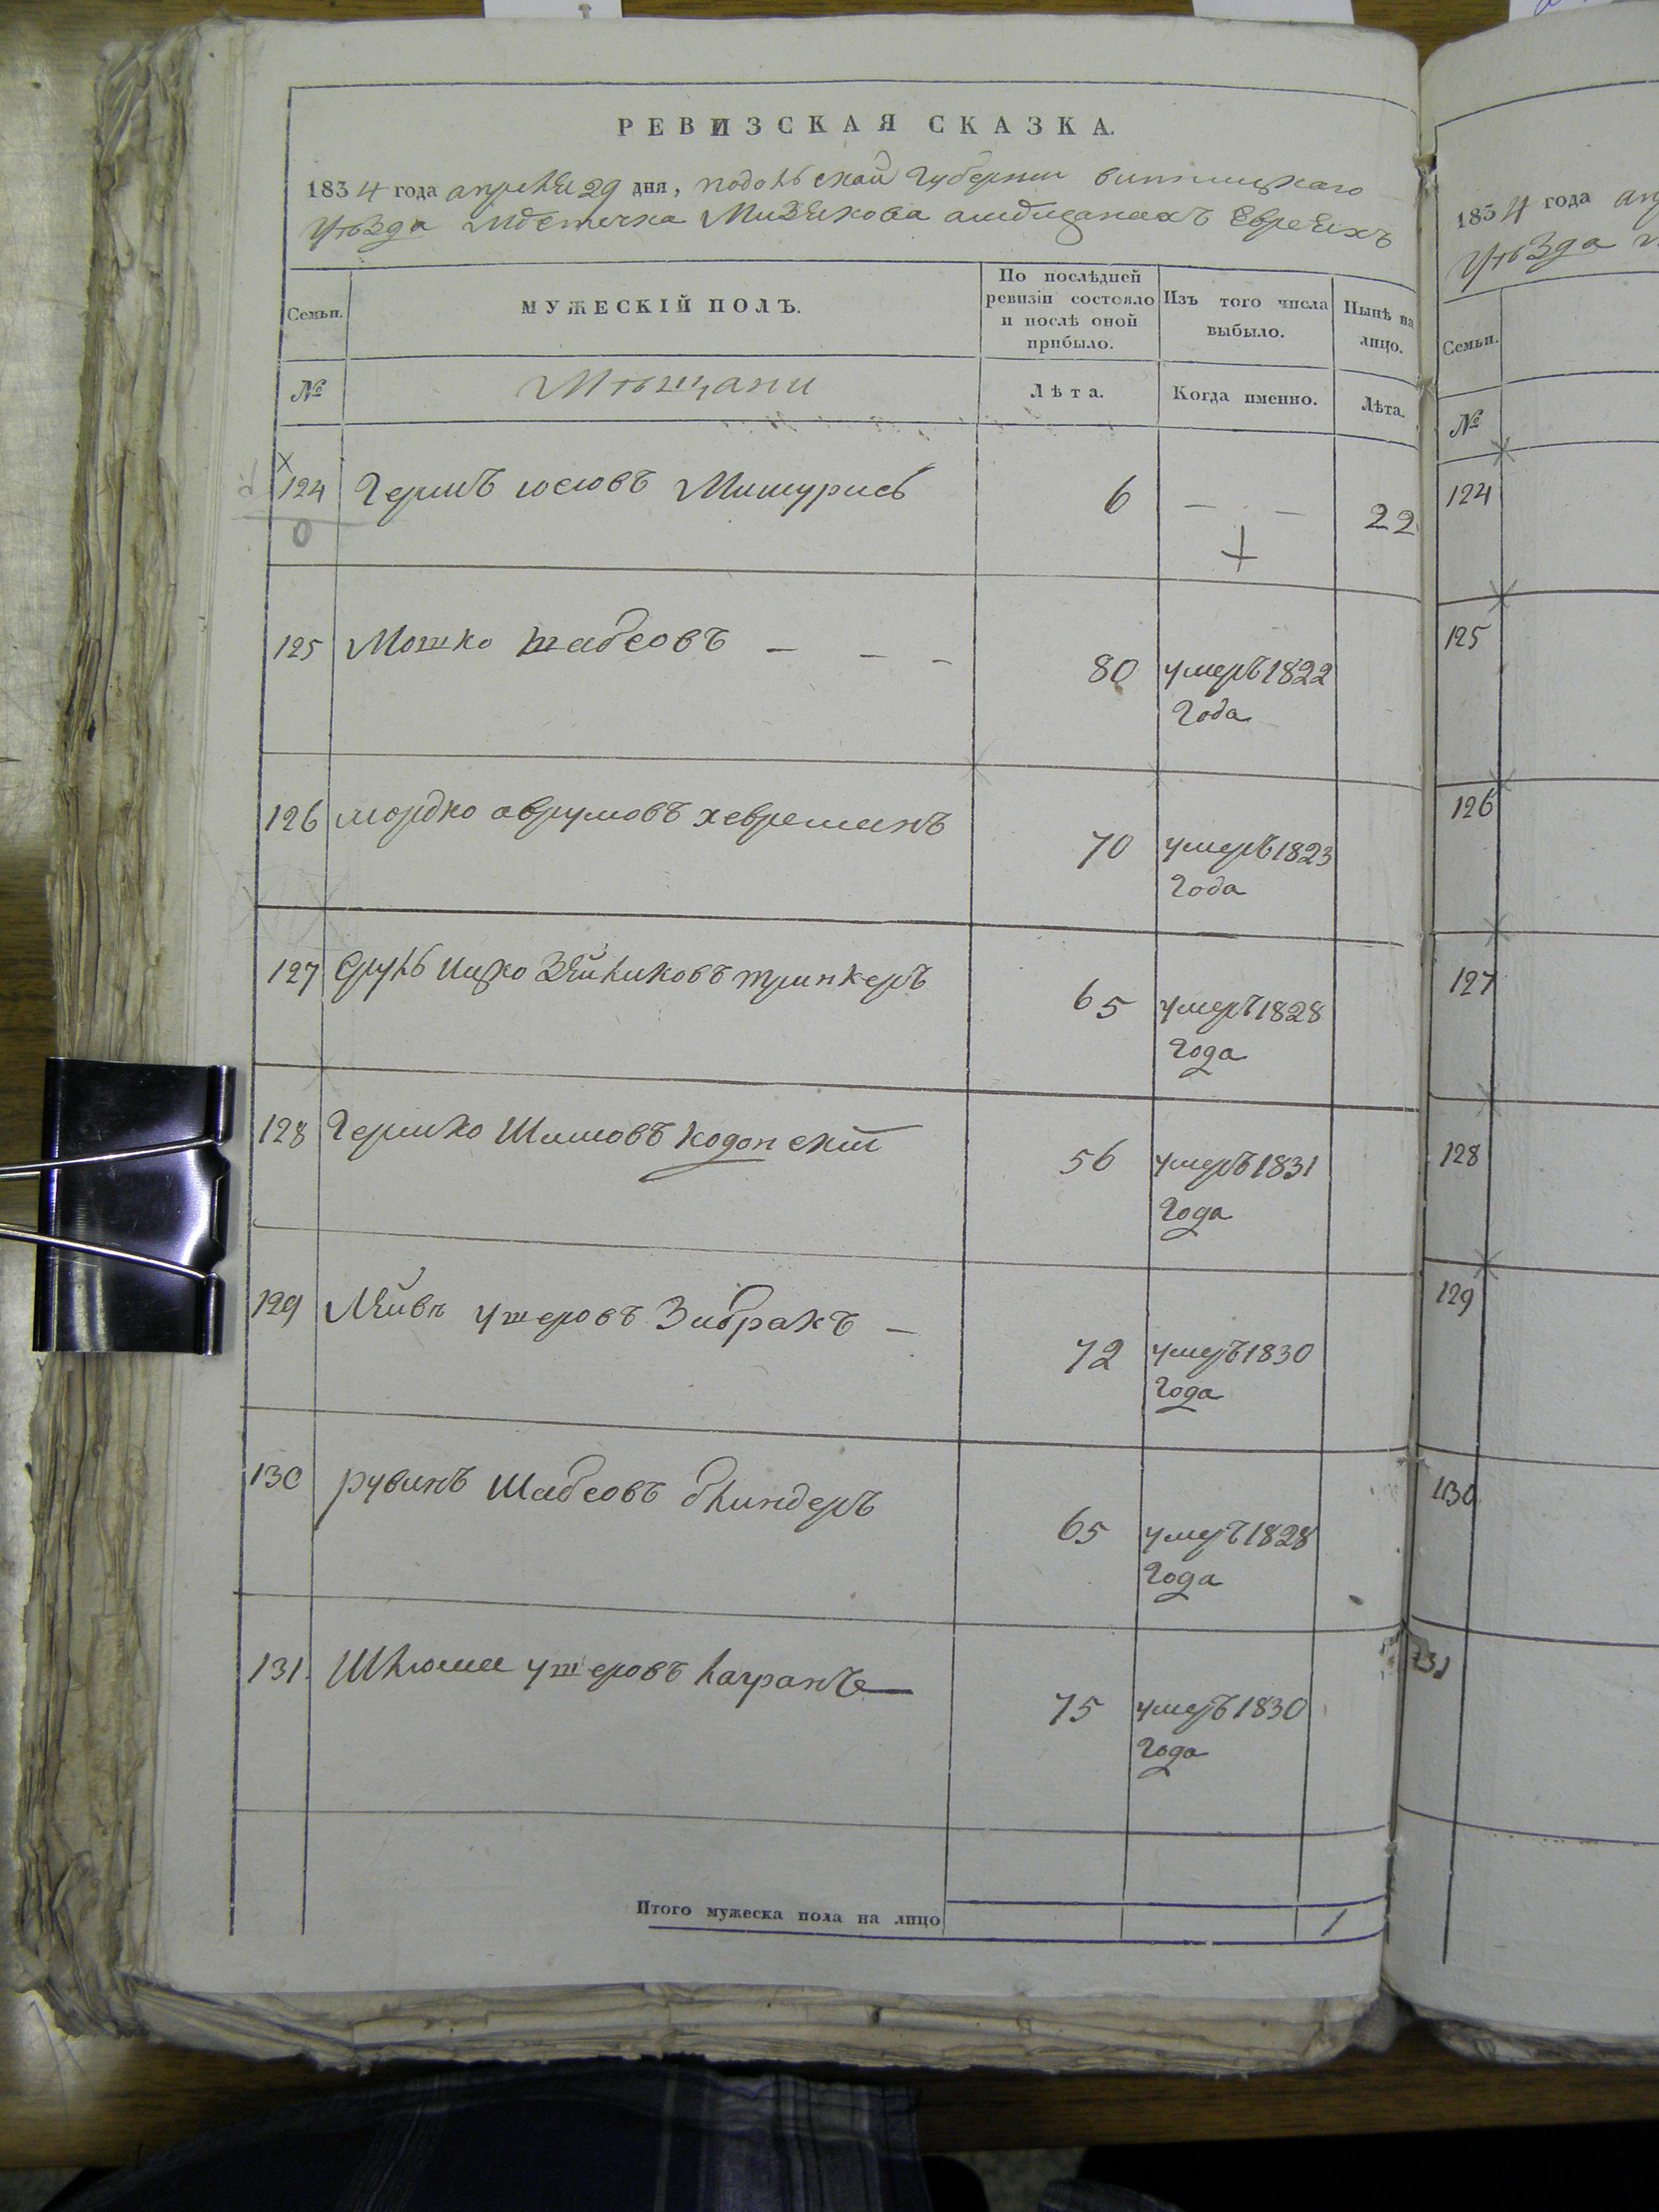 РЕВИЗСКАЯ СКАЗКА.
1834 года апреля 29 дня, подольской Губернии винницкаго
уъзда мдстечка Мизякова амдщанахъ Евреяхъ
Семьи.
МУЖЕСКІЙ ПОЛЪ.
По послѣдней ревизіи состояло и послѣ оной прибыло.
Изъ того числа выбыло.
Нынѣ на лицо.
№
Мъщани
Лѣта.
Когда именно.
Лѣта.
124 Гершъ іосіовъ Мишурисъ 6 — — 22
0
125 Мошко шабсовъ — — — 80 умеръ 1822
Года
126 мордко аврумовъ хеврешанъ 70 умеръ 1823
Года
127 Сруль Ицко Зяйликовъ тринкеръ 65 умеръ 1828
Года
128 Гершко Шимовъ кодонскій 56 умеръ 1831
Года
129 Лейва ушеровъ Зибракъ — 72 умеръ 1830
Года
130 рувинъ Шабсовъ блиндеръ 65 умеръ 1828
Года
131. Шлиома ушеровъ 75 умеръ 1830
Года
Итого мужеска пола на лицо 1
1834 года ап
уъзда
Семьи.
№
124
125
126
127
128
129
130
131